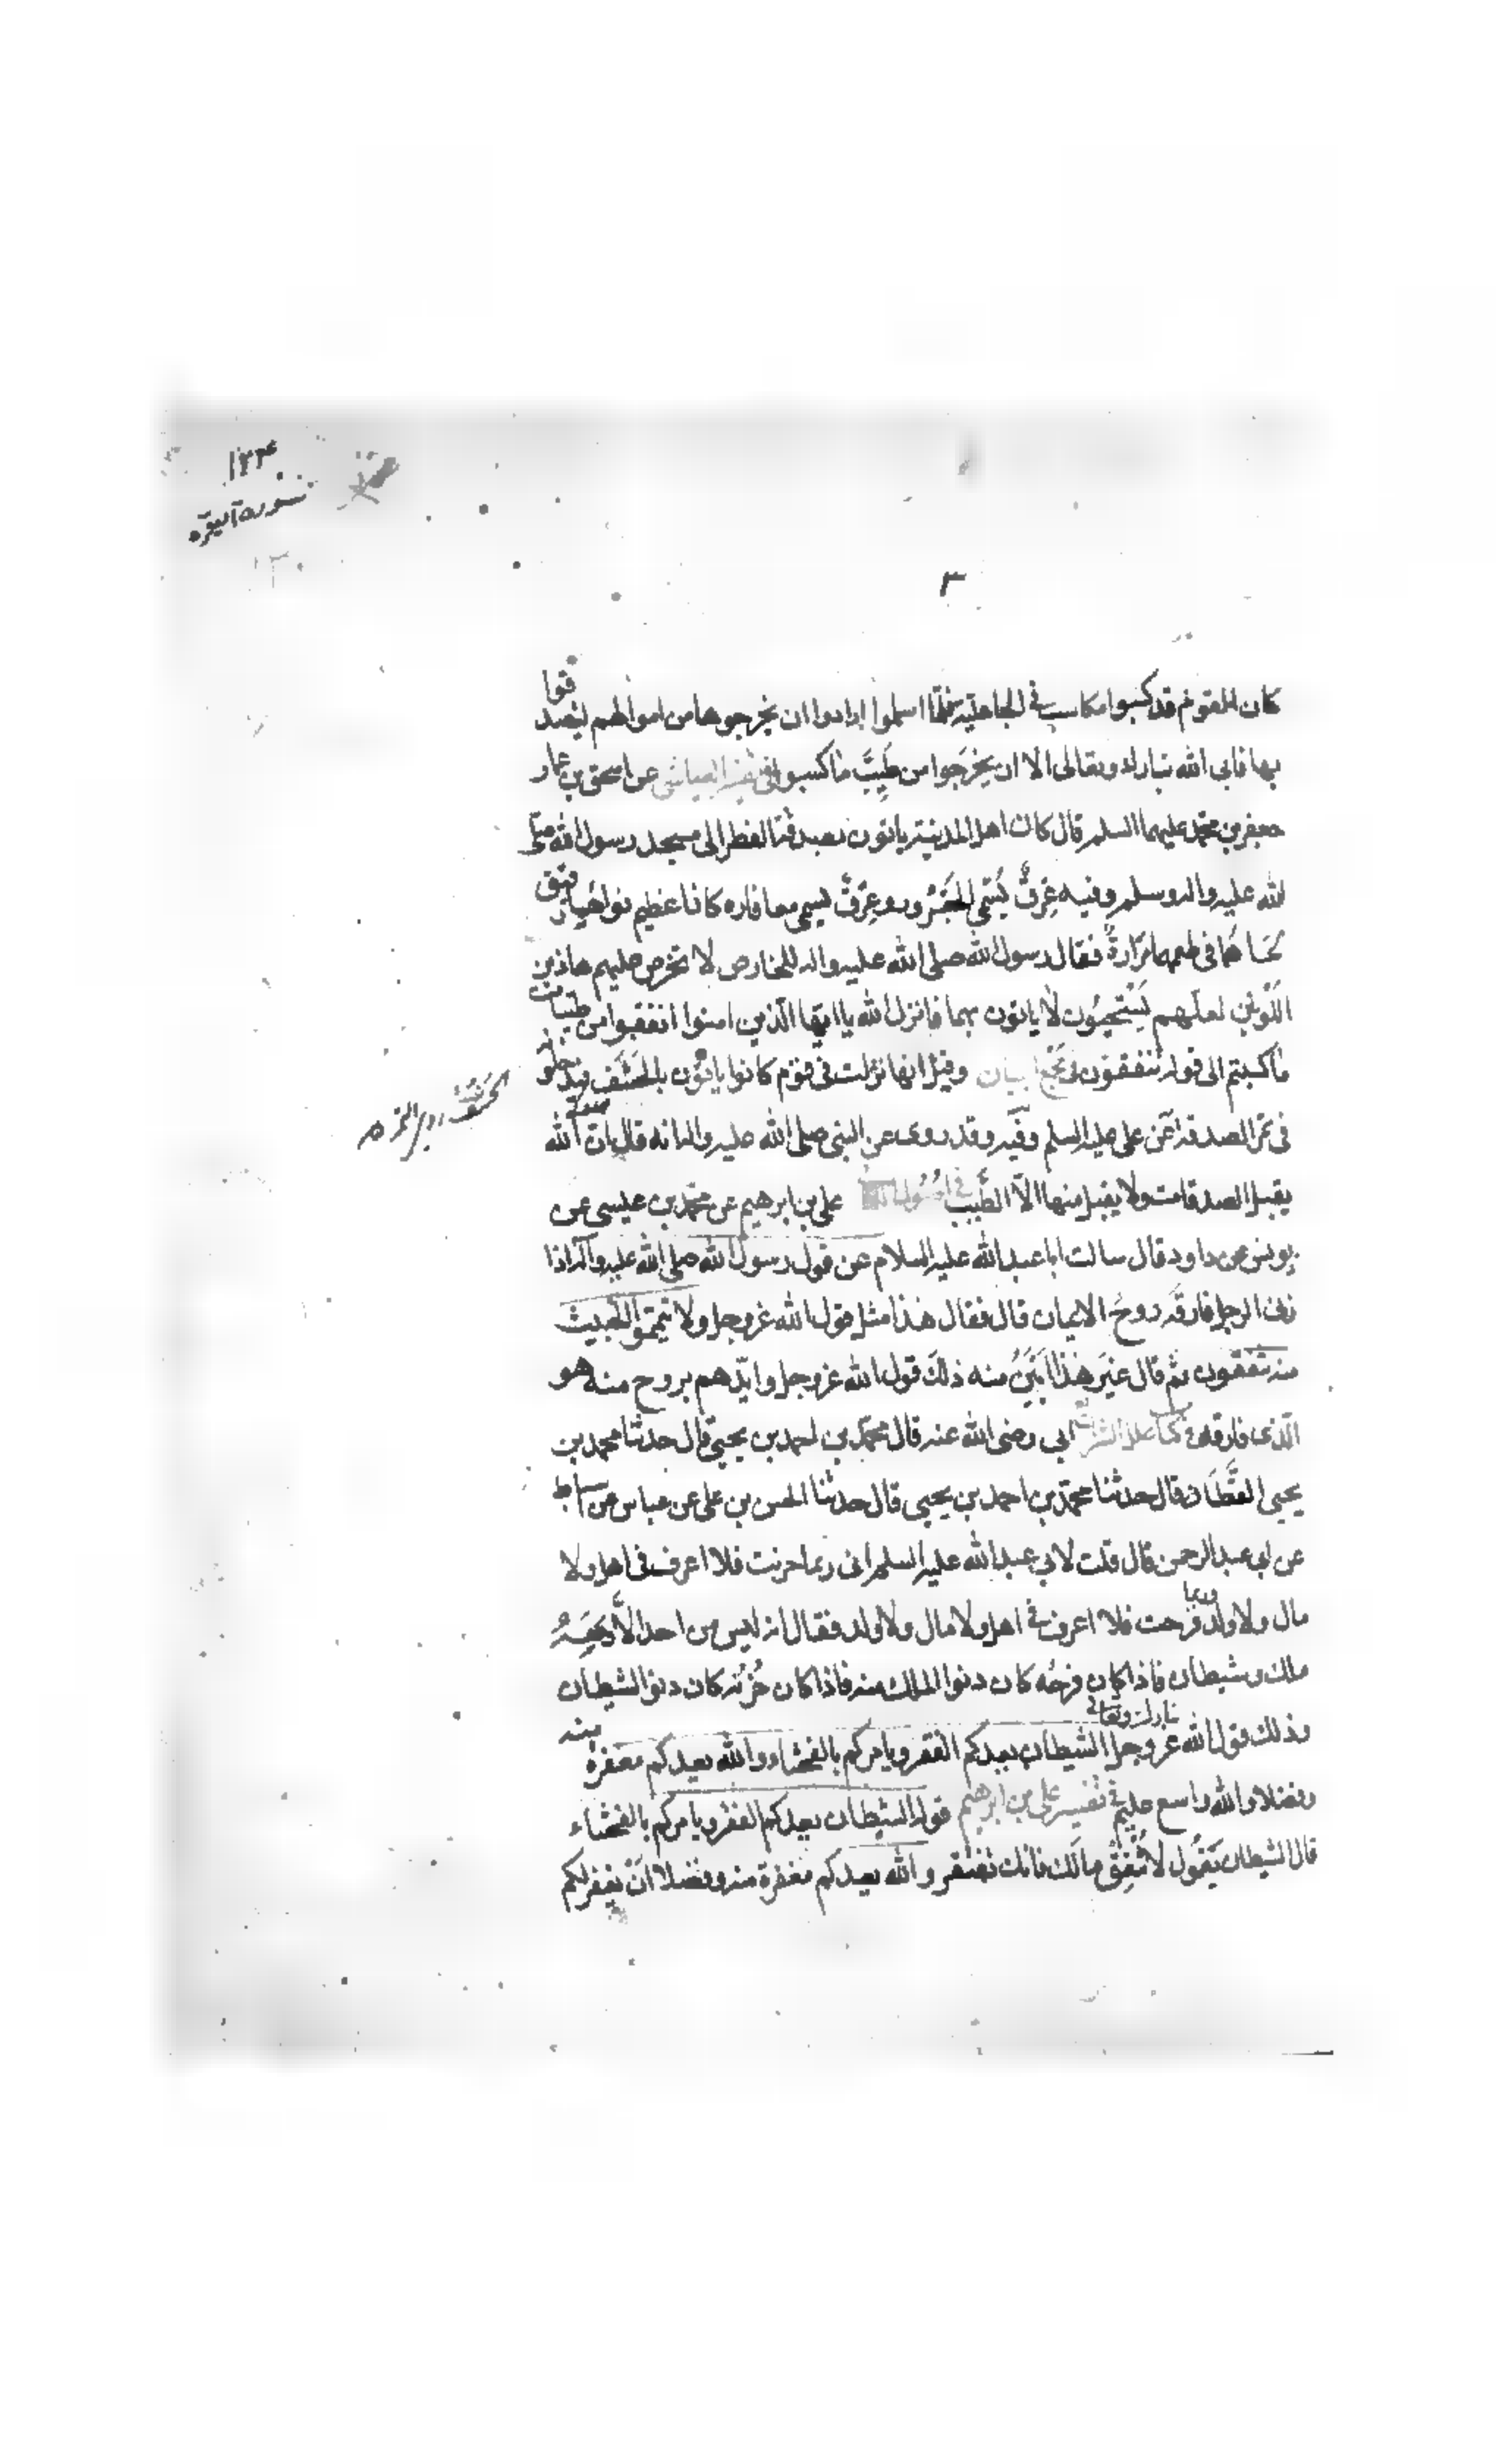 ١٢٣٤
سورة البقره
٣
كان القوم قد كسبوا مكاسب في الجاهلية فلما اسلموا ارادوا ان يخرجوها من اموالهم ليتصدقوا
بها فابى الله تبارك وتعالى الا ان يخرجوا من طيب ما كسبوا في تفسير العياشي عن اسحق بن عمار
جعفر بن محمد عليهما السلم قال كان اهل المدينة ياتون بصدقة الفطر الى مسجد رسول الله صلى
الله عليه واله وسلم وفيه عرق يسمى الجعرور وعرق يسمى معافاره كانا عظيم نواهما رقيق
لحاهما في طعمهما مرارة فقال رسول الله صلى الله عليه واله للخارص لا تخرص عليهم هاذين
اللونين لعلهم يستحيون لا ياتون بهما فانزل الله يا ايها الذين امنوا انفقوا من طيبات
ما كسبتم الى قوله تنفقون في مجمع البيان وقيل انها نزلت في قوم كانوا ياتون بالحشف فيدخلونه
الحشف ردى التمر ه
في تمر الصدقة عن على عليه السلم وفيه وقد روى عن النبي صلى الله عليه واله انه قال ان الله
يقبل الصدقات ولا يقبل منها الا الطيب في اصول الكافي على بن ابرهيم عن محمد بن عيسى عن
يونس عن داود قال سالت ابا عبد الله عليه السلام عن قول رسول الله صلى الله عليه واله اذا
زنى الرجل فارقه روح الايمان قال فقال هذا مثل قول الله عز وجل ولا تيمموا الخبيث
منه تنفقون ثم قال غير هذا ابين منه ذلك قول الله عز وجل وايدهم بروح منه هو
الذى فارقه في كتاب علل الشرايع ابى رضى الله عنه قال محمد بن احمد بن يحيى قال حدثنا محمد بن
يحيى العطار قال حدثنا محمد بن احمد بن يحيى قال حدثنا الحسن بن على عن عباس عن اسباط
عن ابى عبد الرحمن قال قلت لابي عبد الله عليه السلم انى ربما حزنت فلا اعرف في اهل ولا
مال ولا ولد وربما فرحت فلا اعرف في اهل ولا مال ولا ولد فقال انه ليس من احد الا ومعه
ملك وشيطان فاذا كان فرحه كان دنو الملك منه فاذا كان حزنه كان دنو الشيطان منه
وذلك قول الله تبارك وتعالى عز وجل الشيطان يعدكم الفقر ويامركم بالفحشاء والله يعدكم مغفرة
وفضلا والله واسع عليم في تفسير على بن ابراهيم قوله الشيطان يعدكم الفقر ويامركم بالفحشاء
قال الشيطان يقول لا تنفق مالك فانك تفتقر والله يعدكم مغفرة منه وفضلا ان يغفر لكم